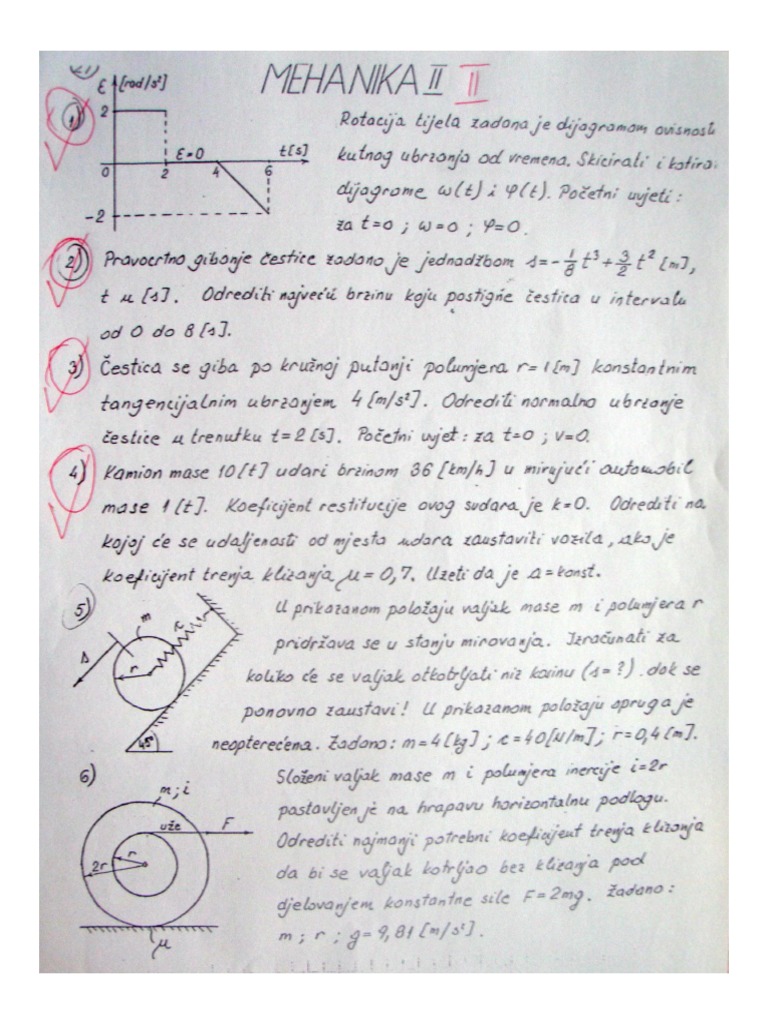 MEHANIKA II II
1)
ε [rad/s²]
2
ε=0
t[s]
0 2 4 6
-2
Rotacija tijela zadana je dijagramom ovisnosti
kutnog ubrzanja od vremena. Skicirati i kotira
dijagrame ω(t) i φ(t). Početni uvjeti:
za t=0 ; ω=0 ; φ=0.
2) Pravocrtno gibanje čestice zadano je jednadžbom s=-1/8 t³+3/2 t² [m],
t u [s]. Odrediti najveću brzinu koju postigne čestica u intervalu
od 0 do 8 [s].
3) Čestica se giba po kružnoj putanji polumjera r=1[m] konstantnim
tangencijalnim ubrzanjem 4 [m/s²]. Odrediti normalno ubrzanje
čestice u trenutku t=2 [s]. Početni uvjet: za t=0 ; v=0.
4) Kamion mase 10[t] udari brzinom 36 [km/h] u mirujući automobil
mase 1 [t]. Koeficijent restitucije ovog sudara je k=0. Odrediti na
kojoj će se udaljenosti od mjesta udara zaustaviti vozila, ako je
koeficijent trenja klizanja μ=0,7. Uzeti da je s=konst.
5)
m
c
s
r
45°
U prikazanom položaju valjak mase m i polumjera r
pridržava se u stanju mirovanja. Izračunati za
koliko će se valjak otkotrljati niz kosinu (s=?) dok se
ponovno zaustavi! U prikazanom položaju opruga je
neopterećena. Zadano: m=4[kg] ; c=40[N/m] ; r=0,4[m].
6)
m; i
uže
F
r
2r
μ
Složeni valjak mase m i polumjera inercije i=2r
postavljen je na hrapavu horizontalnu podlogu.
Odrediti najmanji potrebni koeficijent trenja klizanja
da bi se valjak kotrljao bez klizanja pod
djelovanjem konstantne sile F=2mg. Zadano:
m ; r ; g=9,81[m/s²].